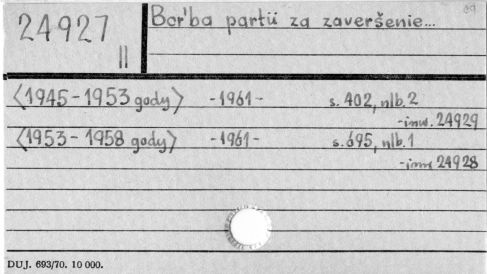 24927
II
Bor'ba partii za zaveršenie...
09
<1945-1953 gody> -1961- s. 402, nlb. 2
-inw. 24929
<1953-1958 gody> -1961- s. 695, nlb. 1
-inw 24928
DUJ. 693/70. 10 000.